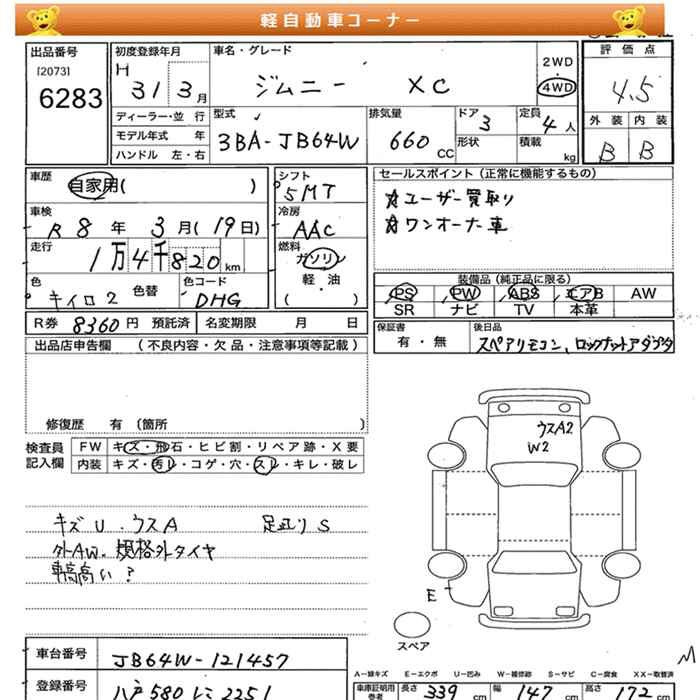 軽自動車コーナー
出品番号
[2073]
6283
初度登録年月
H 31 3月
車名・グレード
ジムニー XC
2WD
4WD
評価点
4.5
外装 内装
B B
ディーラー・並 行
モデル年式 年
ハンドル 左・右
型式
3BA-JB64W
排気量
660 CC
ドア
3
形状
定員
4人
積載
kg
車歴
自家用( )
シフト
5MT
車検
R 8年 3月(19日)
冷房
AAC
走行
1万4千820km
燃料
ガソリン
軽・油
( )
色
キイロ2
色替
色コード
DHG
セールスポイント (正常に機能するもの)
☆ユーザー買取り
☆ワンオーナー車
装備品 (純正品に限る)
PS PW ABS エアB AW
SR ナビ TV 本革
R券 8360円 預託済
名変期限 月 日
保証書
有・無
後日品
スペアリモコン、ロックナットアダプタ
出品店申告欄 (不良内容・欠品・注意事項等記載)
修復歴 有 (箇所 )
検査員
記入欄
FW キズ・飛石・ヒビ割・リペア跡・X要
内装 キズ・汚レ・コゲ・穴・スレ・キレ・破レ
キズU.ウスA 足廻りS
外AW、規格外タイヤ
車高高い?
ウスA2
W2
E
スペア
車台番号
JB64W-121457
登録番号
八戸580 2251
A-線キズ E-エクボ U-凹み W-補修跡 S-サビ C-腐食 XX-取替済
車庫証明用
参考
長さ 339 cm
幅 147 cm
高さ 172 cm